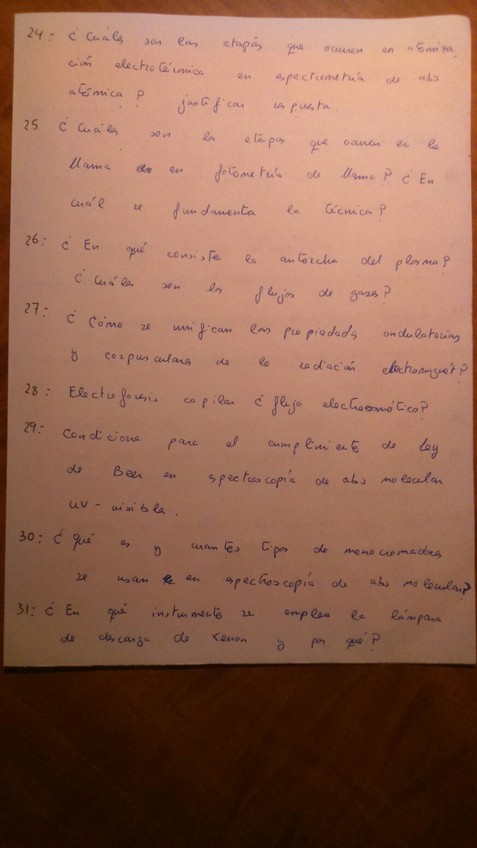 24: ¿Cuáles son las etapas que ocurren en atomiza
ción electrotérmica en espectrometría de abs
atómica? justificar respuesta.
25 ¿Cuáles son las etapas que ocurren en la
llama en fotometría de llama? ¿En
cuál se fundamenta la técnica?
26: ¿En qué consiste la antorcha del plasma?
¿Cuáles son los flujos de gases?
27: ¿Cómo se unifican las propiedades ondulatorias
y corpusculares de la radiación electromagnét?
28: Electroforesis capilar ¿flujo electroosmótico?
29: Condiciones para el cumplimiento de Ley
de Beer en espectroscopía de abs molecular
UV-visible.
30: ¿Qué es y cuantos tipos de monocromadores
se usan en espectroscopía de abs molecular?
31: ¿En qué instrumento se emplea la lámpara
de descarga de Xenon y por qué?